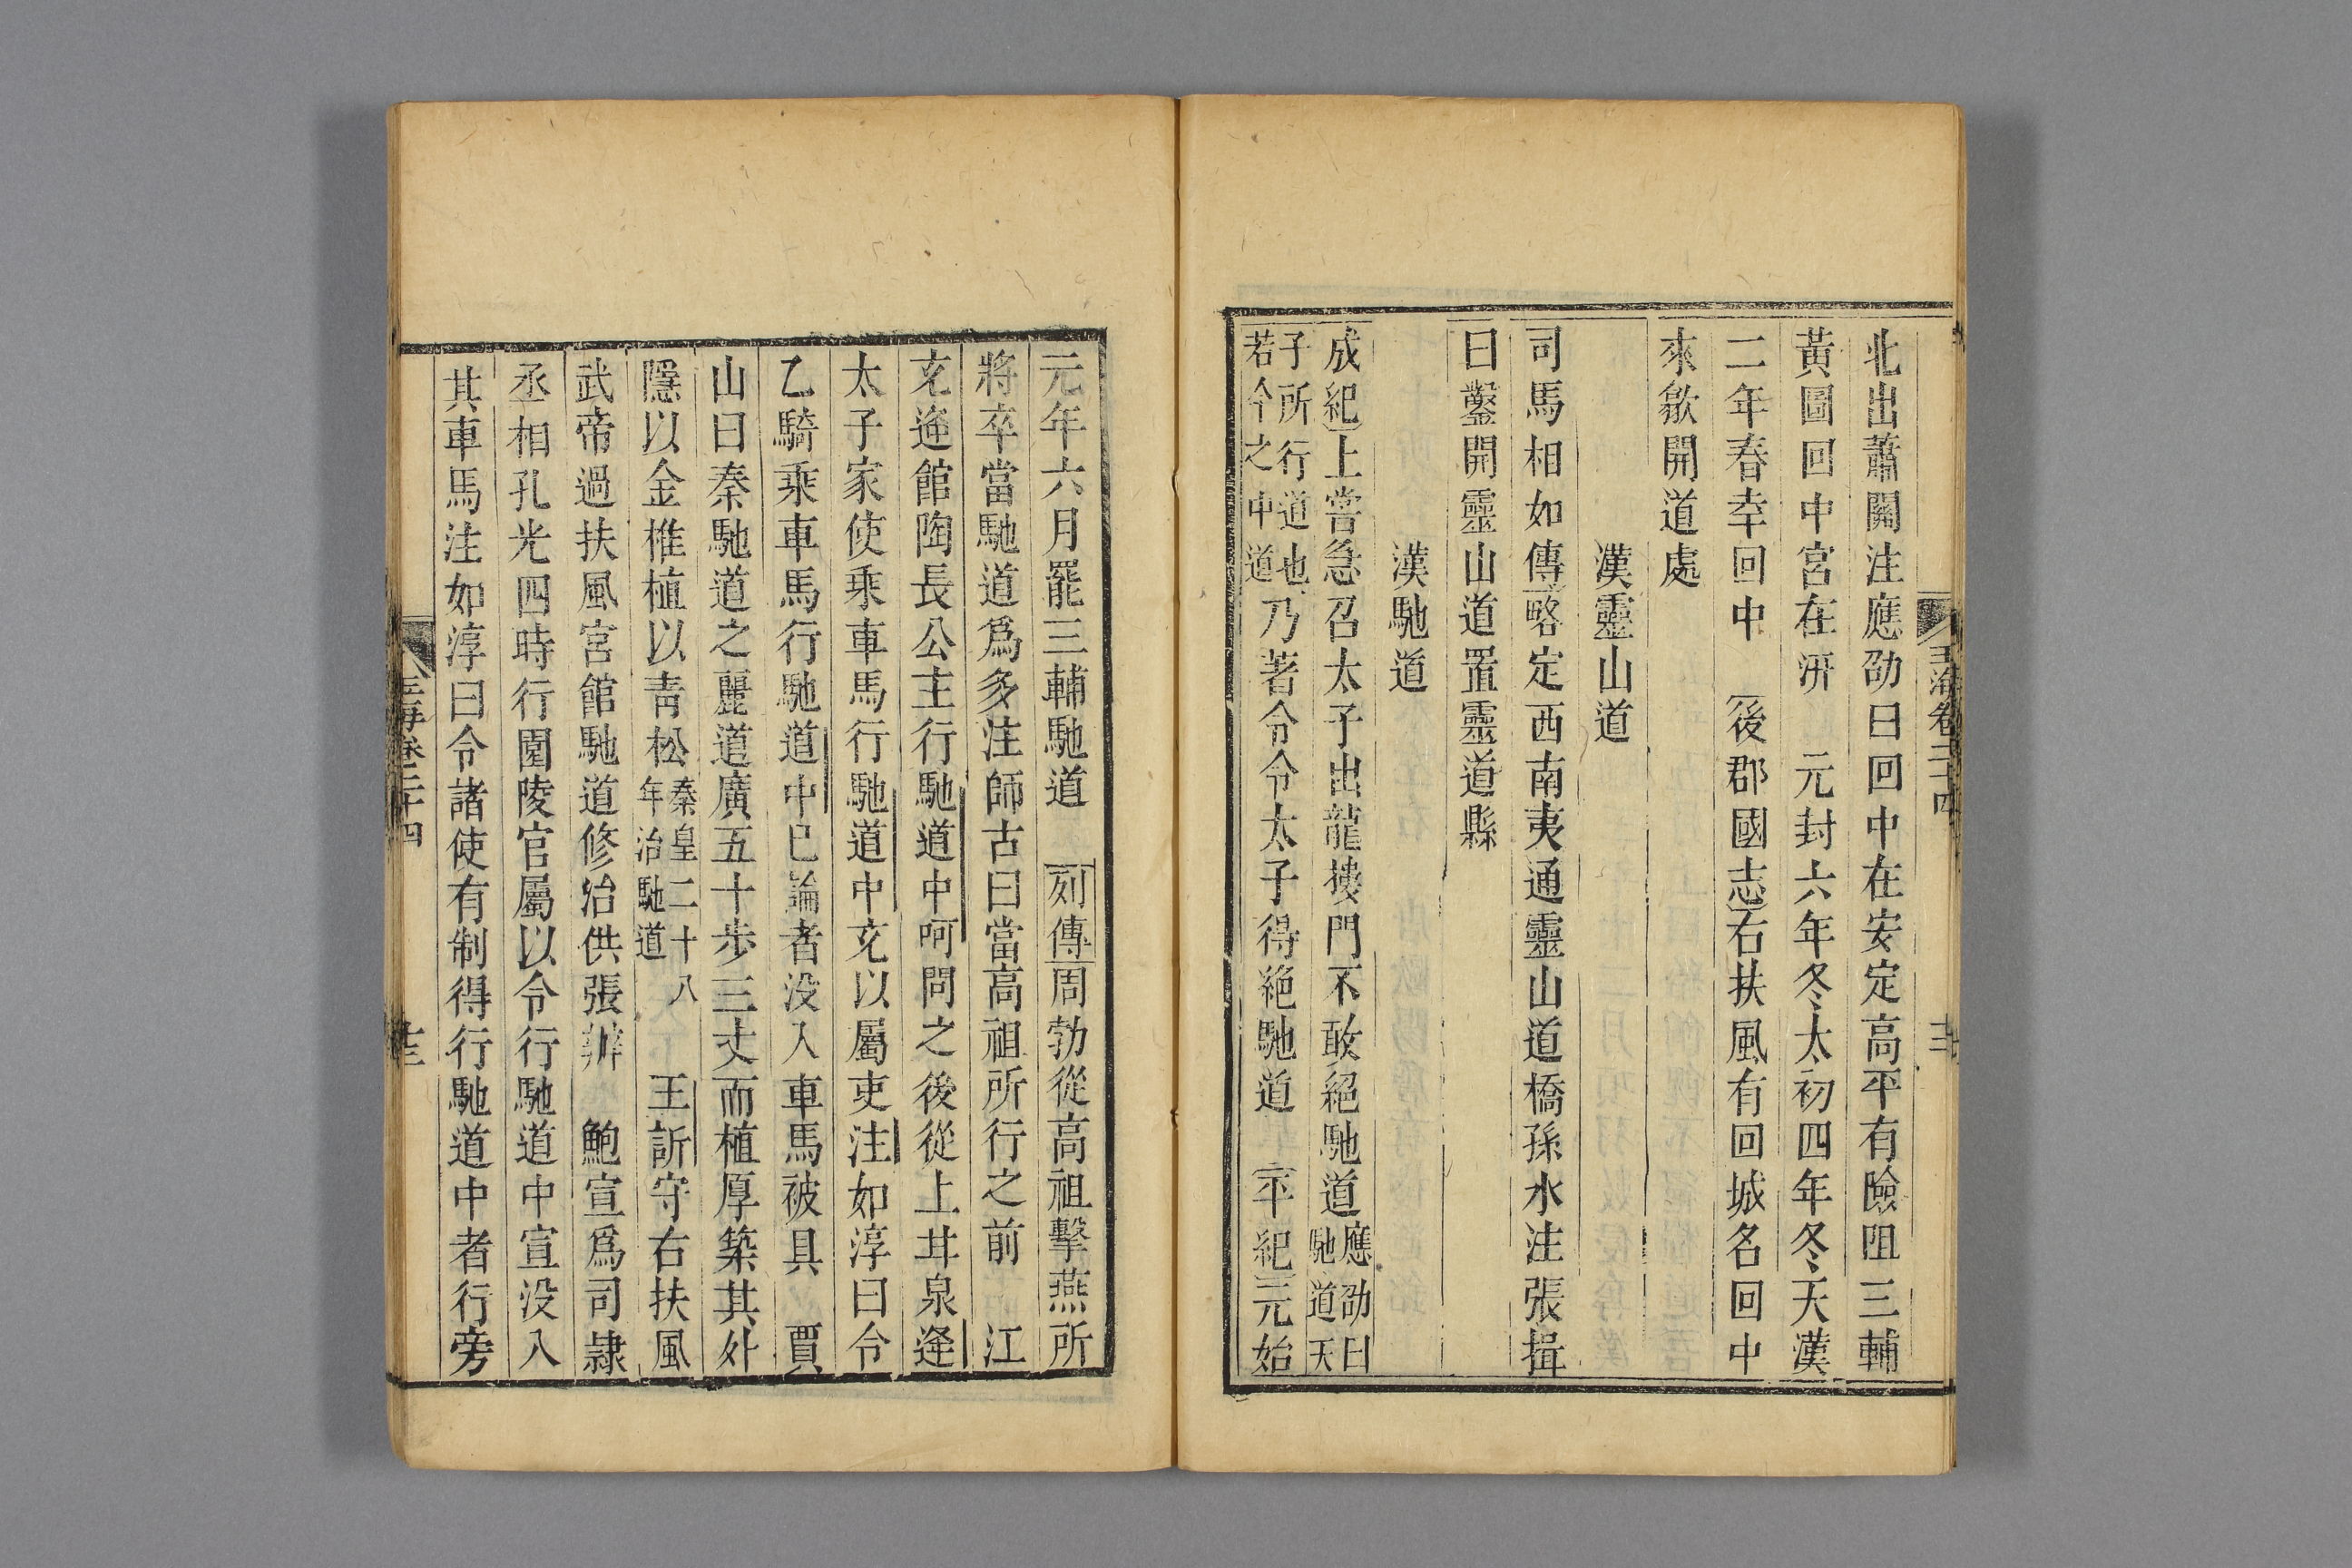 玉海卷二十四
北出蕭關注應劭曰回中在安定高平有險阻三輔
黃圖回中宮在汧　元封六年冬太初四年冬天漢
二年春幸回中　後郡國志右扶風有回城名回中
來歙開道處
漢靈山道
司馬相如傳略定西南夷通靈山道橋孫水注張揖
曰鑿開靈山道置靈道縣
漢馳道
成紀上嘗急召太子出龍摟門不敢絕馳道應劭曰馳道天
子所行道也若今之中道乃著令令太子得絕馳道　平紀元始
元年六月罷三輔馳道　列傳周勃從高祖擊燕所
將卒當馳道爲多注師古曰當高祖所行之前　江
充逢館陶長公主行馳道中呵問之後從上甘泉逢
太子家使乘車馬行馳道中充以屬吏注如淳曰令
乙騎乘車馬行馳道中已論者没入車馬被具　賈
山曰秦馳道之麗道廣五十步三丈而植厚築其外
隱以金椎植以青松秦皇二十八年治馳道　王訢守右扶風
武帝過扶風宮館馳道修治供張辦　鮑宣爲司隷
丞相孔光四時行園陵官屬以令行馳道中宣没入
其車馬注如淳曰令諸使有制得行馳道中者行旁
玉海卷二十四
十三